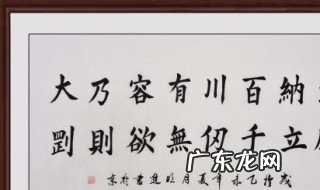 納百川有容乃大
立千仞無欲則剛
夏月旺進書於京
广东龙网